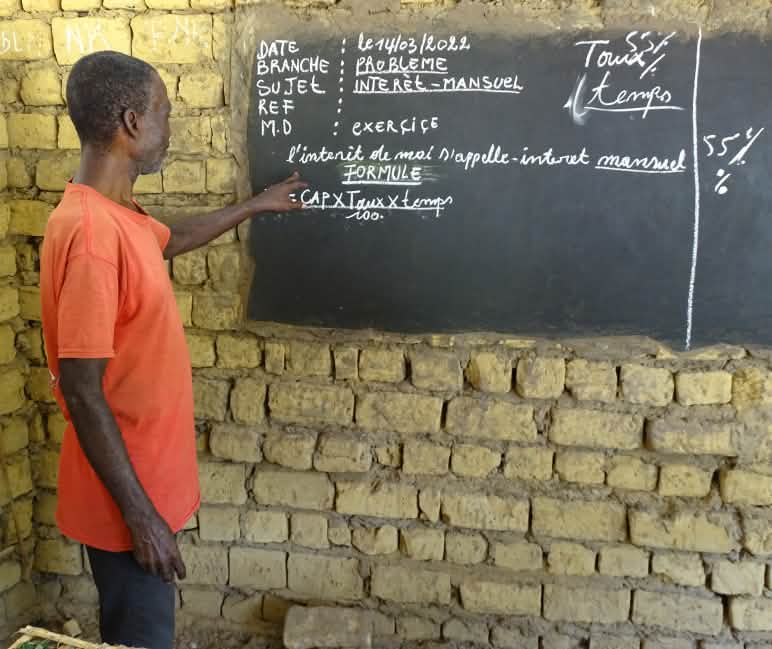 DATE : le 14/03/2022
BRANCHE : PROBLEME
SUJEt : INTERÈT-MANSUEL
REF :
M.D : EXERÇIÇE
l'interit de moi s'appelle-interet mansuel
FORMULE
= CAP X Taux x temps
100.
Taux
55%
temps
55%
%
NR